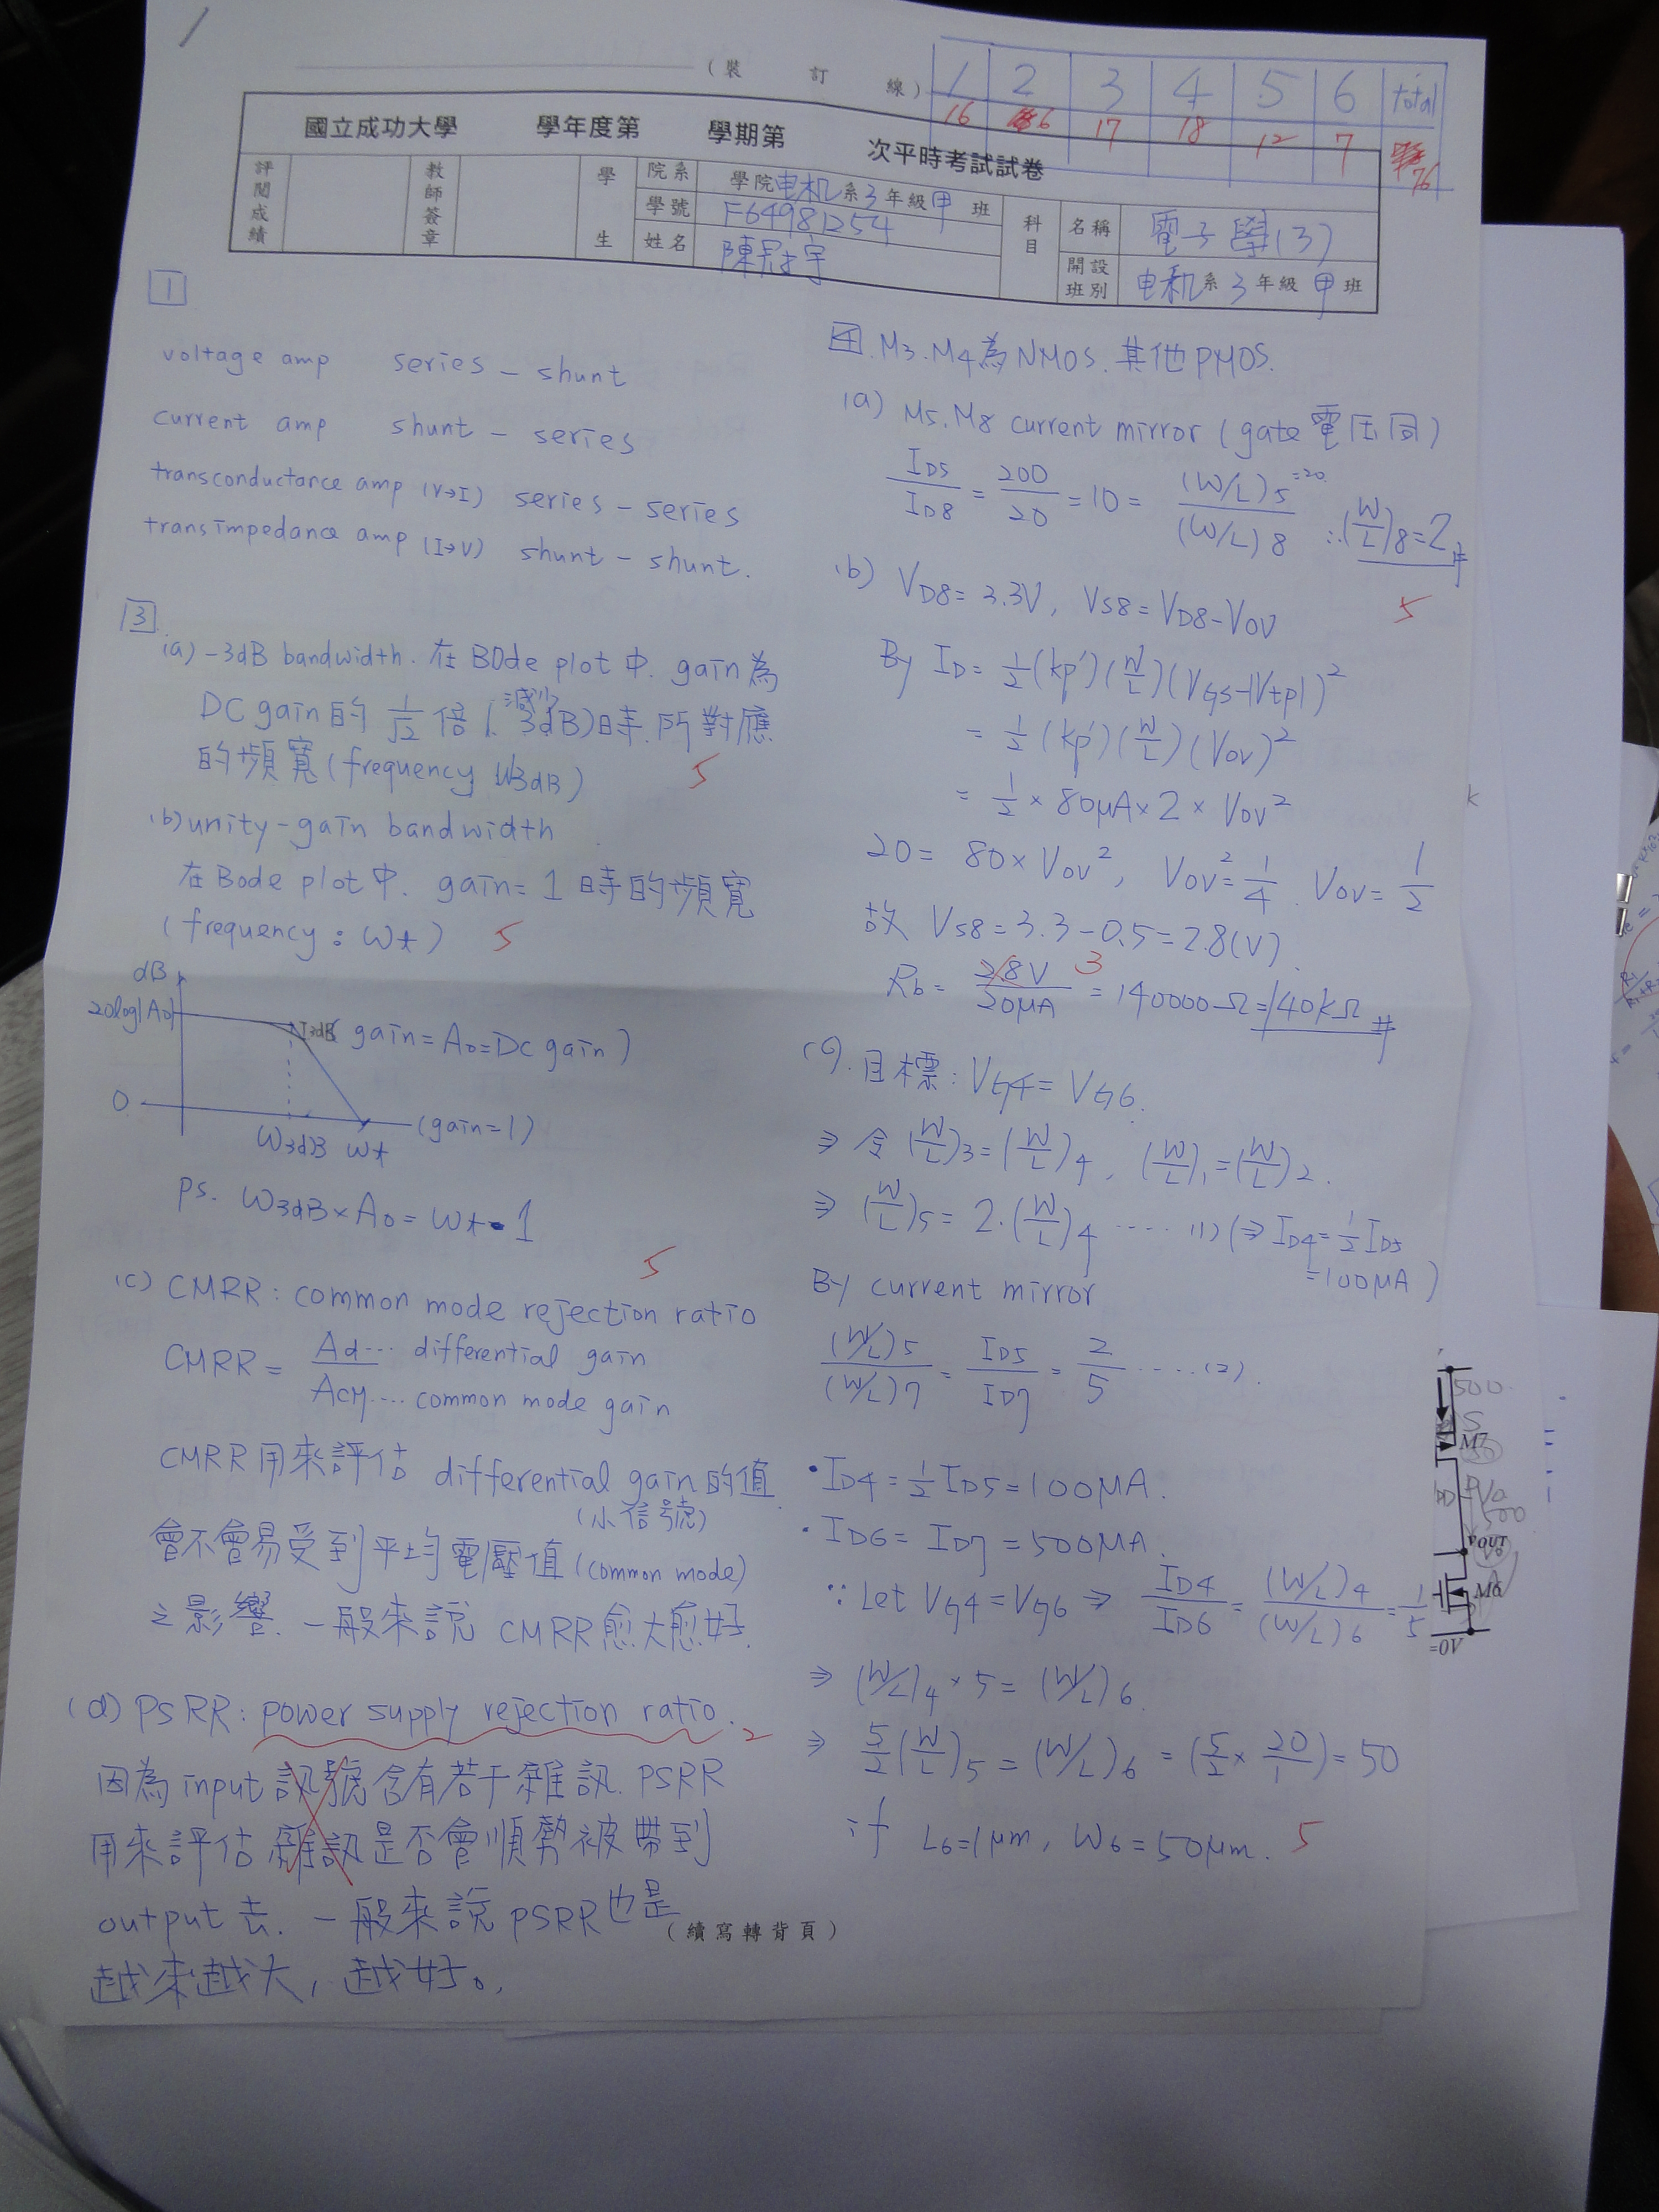 (裝 訂 線)
1 2 3 4 5 6 total
16 6 17 18 12 7 76
國立成功大學 學年度第 學期第 次平時考試試卷
評閱成績
教師簽章
學生
院系 學院电机系3年級甲班
學號 F64981254
姓名
科目
名稱 電子學(3)
開設班別 电机系3年級甲班
1
voltage amp series - shunt
current amp shunt - series
transconductance amp (V→I) series - series
transimpedance amp (I→V) shunt - shunt.
3
(a) -3dB bandwidth. 在BOde plot中. gain為
DC gain的 1/√2 倍(減少3dB)時.所對應
的頻寬(frequency W3dB)
5
(b) unity-gain bandwidth
在Bode plot中. gain=1時的頻寬
(frequency: ωt) 5
dB
20log|A0|
3dB (gain=A0=DC gain)
0 (gain=1)
W3dB ωt
ps. W3dB×A0=ωt·1
5
(c) CMRR: common mode rejection ratio
CMRR = Ad… differential gain / ACM… common mode gain
CMRR用來評估 differential gain的值
(小信號)
會不會易受到平均電壓值(common mode)
之影響. 一般來說 CMRR愈大愈好.
(d) PSRR: power supply rejection ratio. 2
因為input訊號含有若干雜訊. PSRR
用來評估雜訊是否會順勢被帶到
output去. 一般來說PSRR也是
越來越大, 越好。
4. M3.M4為NMOS.其他PMOS.
(a) M5.M8 current mirror (gate電压同)
ID5/ID8 = 200/20 = 10 = (W/L)5 =20 / (W/L)8 ∴(W/L)8=2 #
5
(b) VD8=3.3V, VS8=VD8-VOV
By ID=½(kp')(W/L)(VGS-|Vtp|)²
=½(kp')(W/L)(VOV)²
=½×80μA×2×VOV²
20=80×VOV², VOV²=1/4. VOV=1/2
故 VS8=3.3-0.5=2.8(V).
Rb= 2.8V/20μA =140000Ω=140kΩ #
3
(c). 目標: VG4=VG6.
⇒ 令(W/L)3=(W/L)4, (W/L)1=(W/L)2.
⇒ (W/L)5=2·(W/L)4 ……(1) (⇒ID4=½ID5
=100μA)
By current mirror
(W/L)5/(W/L)7 = ID5/ID7 = 2/5 ……(2).
•ID4=½ID5=100μA.
•ID6=ID7=500μA.
∵Let VG4=VG6 ⇒ ID4/ID6 = (W/L)4/(W/L)6 = 1/5
⇒ (W/L)4×5=(W/L)6
⇒ 5/2(W/L)5=(W/L)6=(5/2×20/1)=50
if L6=1μm, W6=50μm. 5
500
S
M7
D
500
VOUT
M6
=0V
(續寫轉背頁)